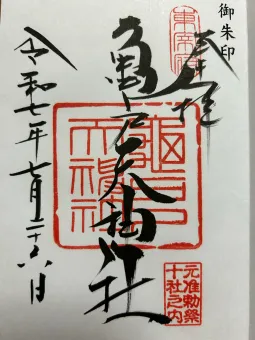 御朱印
奉拝
東宰府
亀戸天神社
元准勅祭
十社之内
令和七年七月二十六日